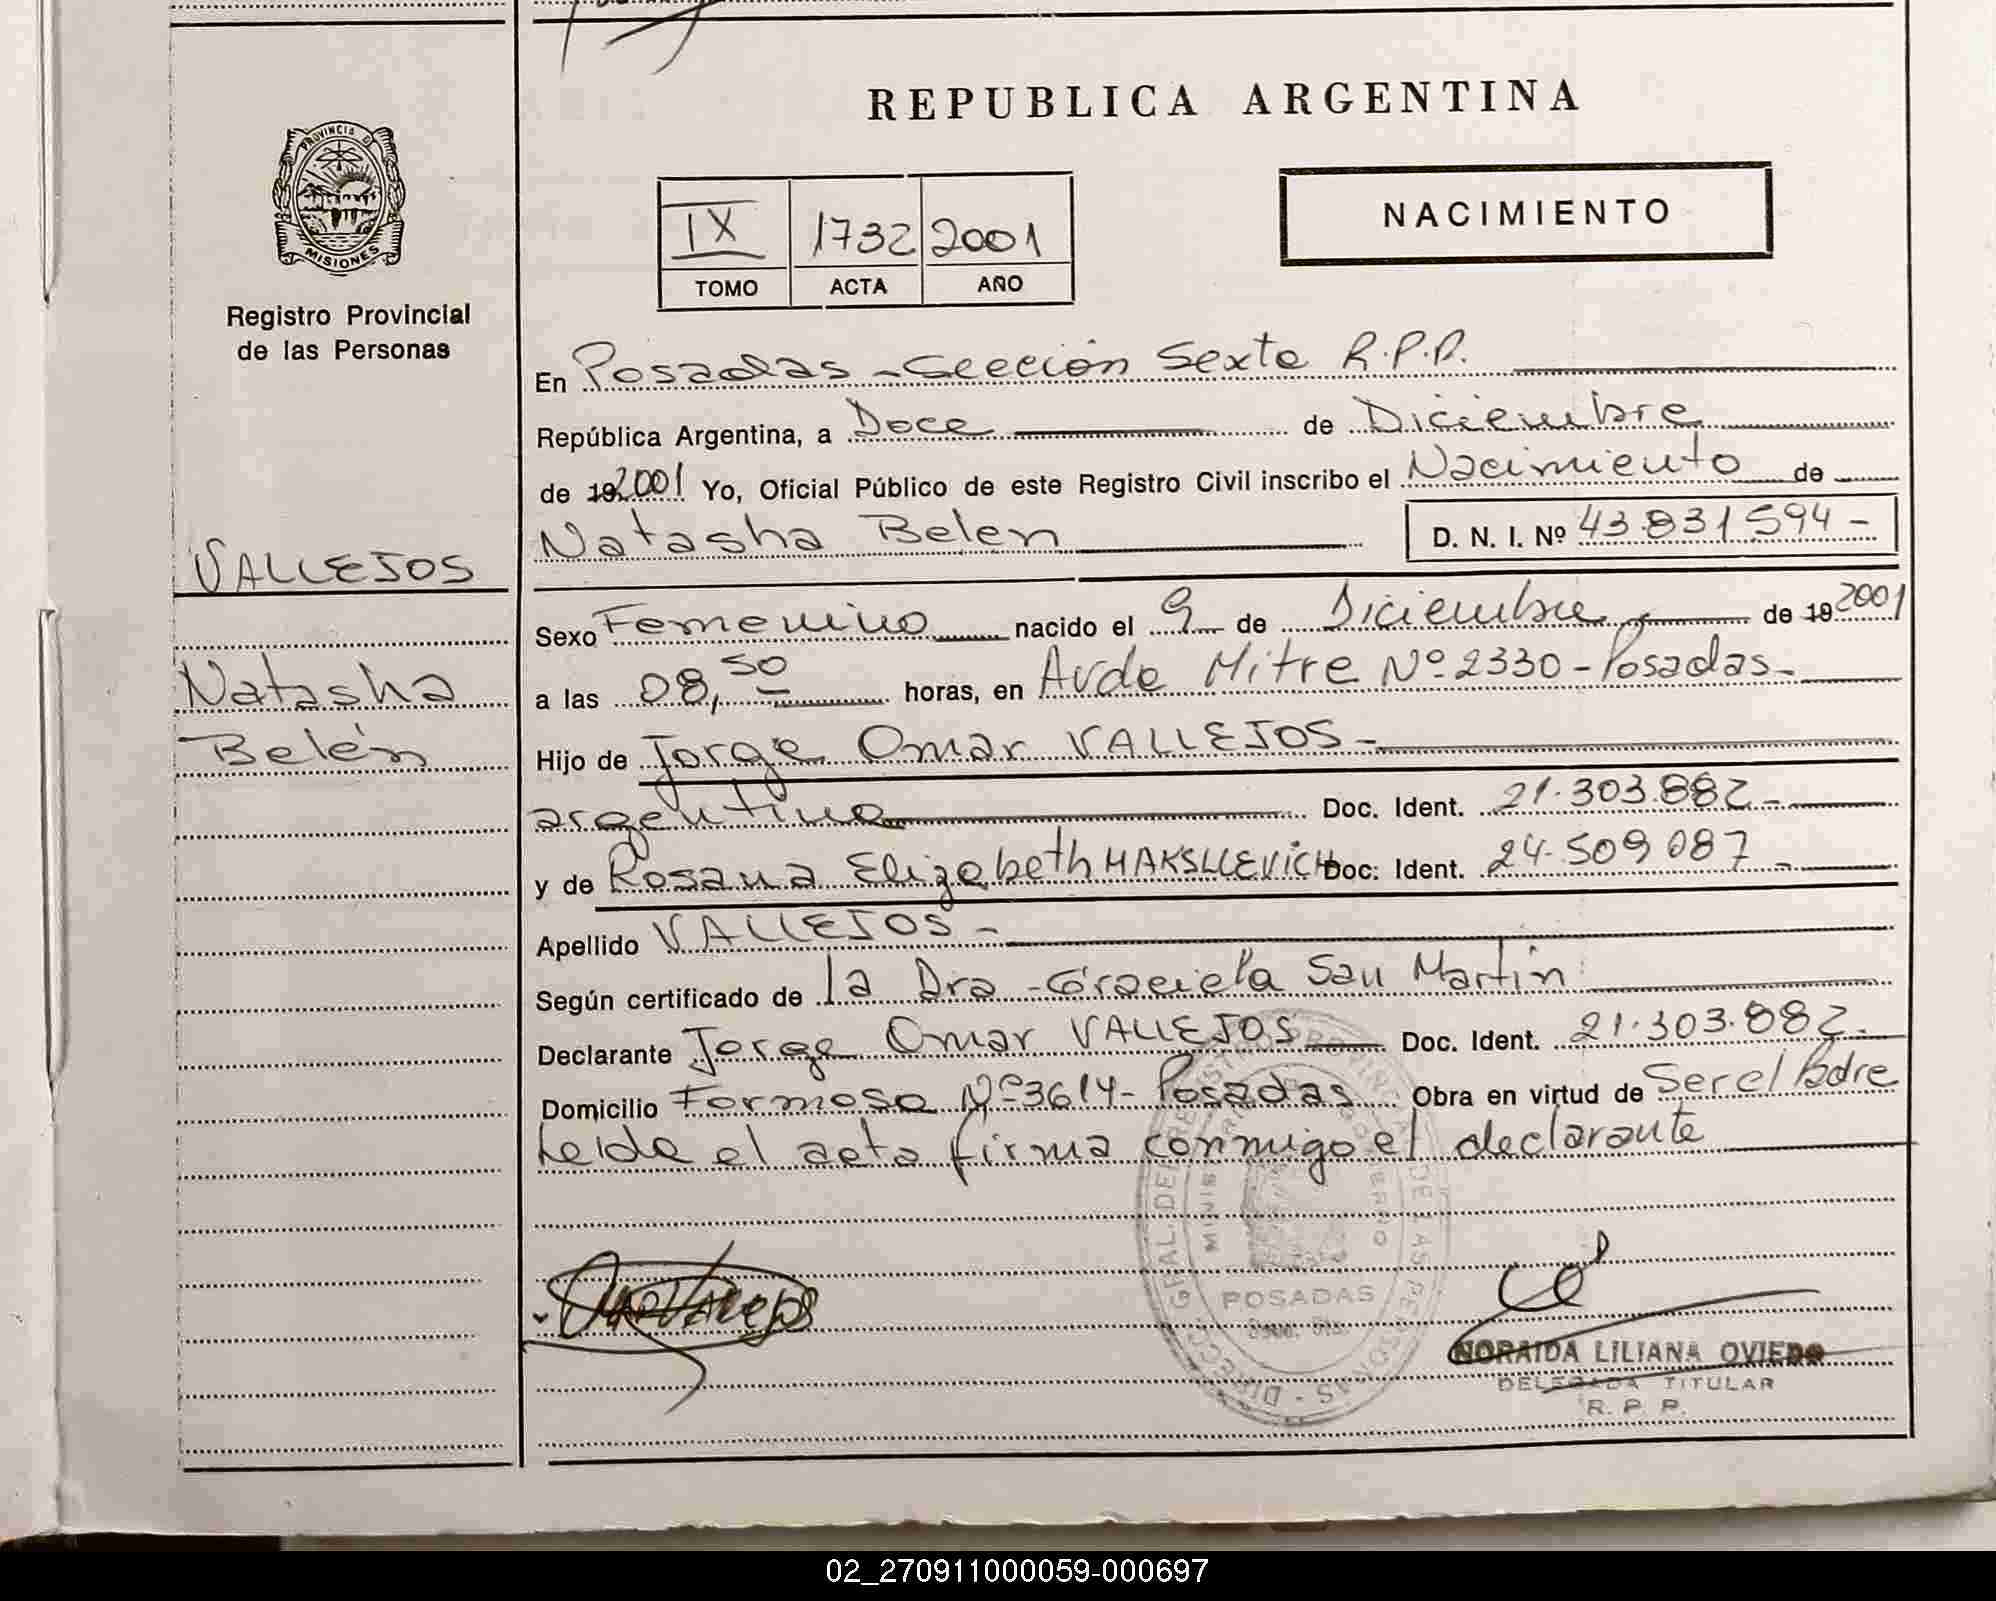 REPUBLICA ARGENTINA
PROVINCIA DE
MISIONES
Registro Provincial
de las Personas
IX 1732 2001
TOMO ACTA AÑO
NACIMIENTO
En Posadas - Sección Sexta R.P.P.
República Argentina, a Doce de Diciembre
de 19 2001 Yo, Oficial Público de este Registro Civil inscribo el Nacimiento de
Natasha Belen D. N. I. Nº 43.831594-
VALLEJOS
Natasha
Belén
Sexo Femenino nacido el 9 de Diciembre de 19 2001
a las 08,50 horas, en Avda Mitre Nº 2330 - Posadas-
Hijo de Jorge Omar VALLEJOS-
argentino Doc. Ident. 21.303.882-
y de Rosana Elizabeth MAKSLLEVICH Doc: Ident. 24.509 087-
Apellido VALLEJOS-
Según certificado de la Dra Graciela San Martín
Declarante Jorge Omar VALLEJOS Doc. Ident. 21.303.882-
Domicilio Formosa Nº 3614 - Posadas Obra en virtud de Ser el Padre
Leída el acta firma conmigo el declarante
POSADAS
NORAIDA LILIANA OVIEDO
DELEGADA TITULAR
R. P. P.
02_270911000059-000697